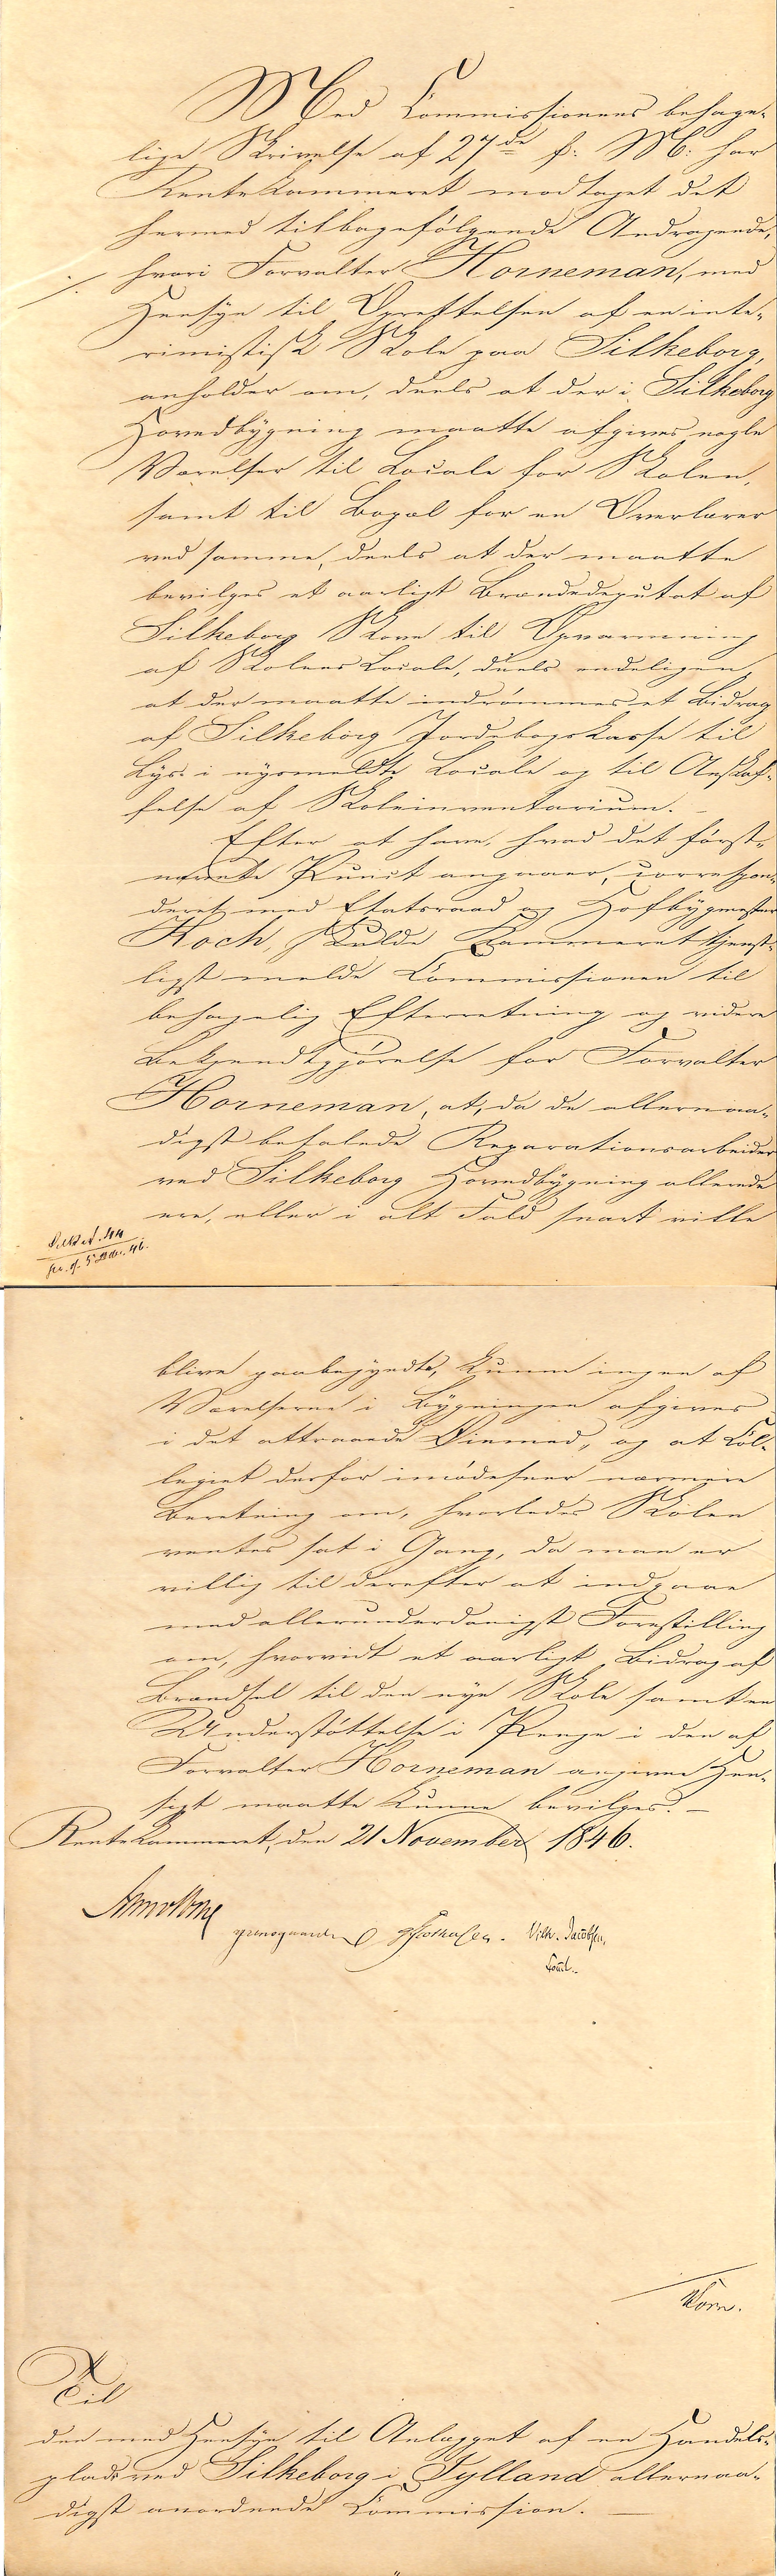 Med Commissionens behage-
lige Skrivelse af 27de f. M. har
Rentekammeret modtaget det
hermed tilbagefølgende Andragende,
hvori Forvalter Horneman, med
Hensyn til Oprettelsen af en inte-
rimistisk Skole paa Silkeborg,
anholder om, deels at der i Silkeborg
Hovedbygning maatte afgives nogle
Værelser til Locale for Skolen,
samt til Bopæl for en Overlærer
ved samme, deels at der maatte
bevilges et aarligt Brændedeputat af
Silkeborg Skove til Opvarmning
af Skolens Locale, deels endeligen,
at der maatte indrømmes et Bidrag
af Silkeborg Jordebogskasse til
Lys i nysmeldte Locale og til Anskaf-
felse af Skoleinventarium. -
Efter at have, hvad det først-
nævnte Punct angaaer, correspon-
deret med Etatsraad og Hofbygmester
Koch, skulde Kammeret tjenst-
ligst melde Commissionen til
behagelig Efterretning og videre
Bekjendtgjørelse for Forvalter
Horneman, at, da de allernaa-
digst befalede Reparationsarbeider
ved Silkeborg Hovedbygning allerede
ere, eller i alt Fald snart ville
blive paabegyndte, kunne ingen af
Værelserne i Bygningen afgives
i det attraaede Øiemed, og at Col-
legiet derfor imødeseer nærmere
Beretning om, hvorledes Skolen
ventes sat i Gang, da man er
villig til derefter at indgaae
med allerunderdanigst Forestilling
om, hvorvidt et aarligt Bidrag af
Brændsel til den nye Skole samt en
Understøttelse i Penge i den af
Forvalter Horneman angivne Hen-
sigt maatte kunne bevilges. -
Rentekammeret, den 21 November 1846.
Vilh. Jacobsen,
Const.
Til
den med Hensyn til Anlægget af en Handels-
plads ved Silkeborg i Jylland allernaa-
digst anordnede Commission. -